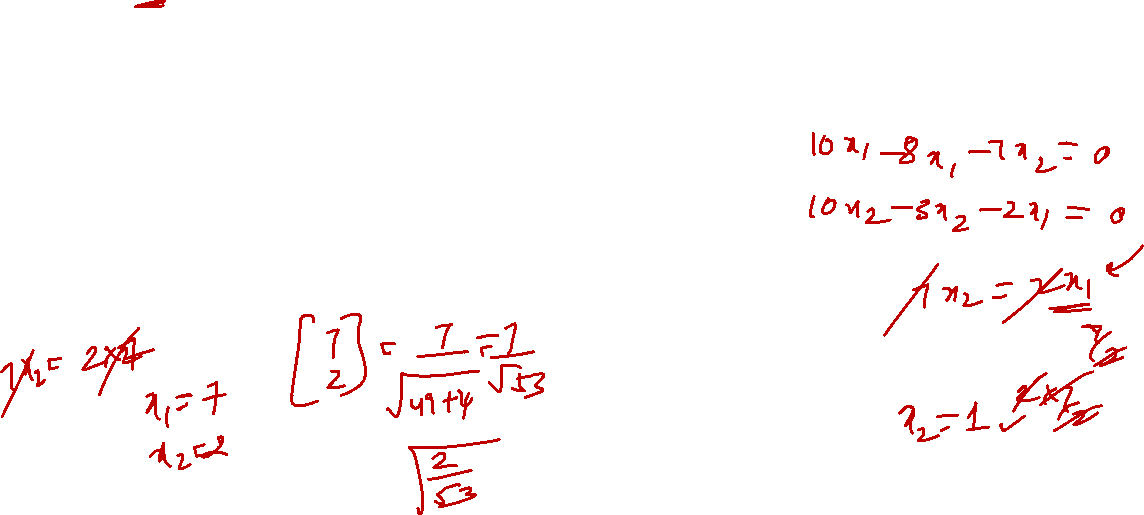 10x₁ - 8x₁ - 7x₂ = 0
10x₂ - 3x₂ - 2x₁ = 0
7x₂ = 2x₁
7/2
x₂ = 1 ✓ 2 × 7/2
7x₂ = 2×7
x₁ = 7
x₂ = 2
[7 2] = 7/√49+4 = 7/√53
√2/53